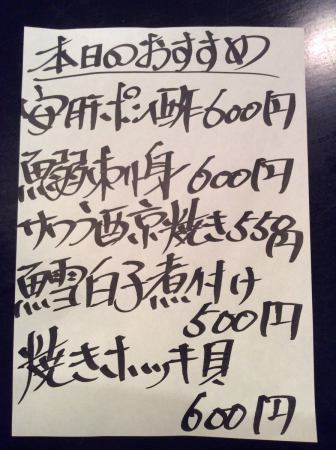 本日のおすすめ
安肝ポン酢600円
鰯刺身600円
サワラ西京焼き550円
鱈白子煮付け
500円
焼きホッキ貝
600円